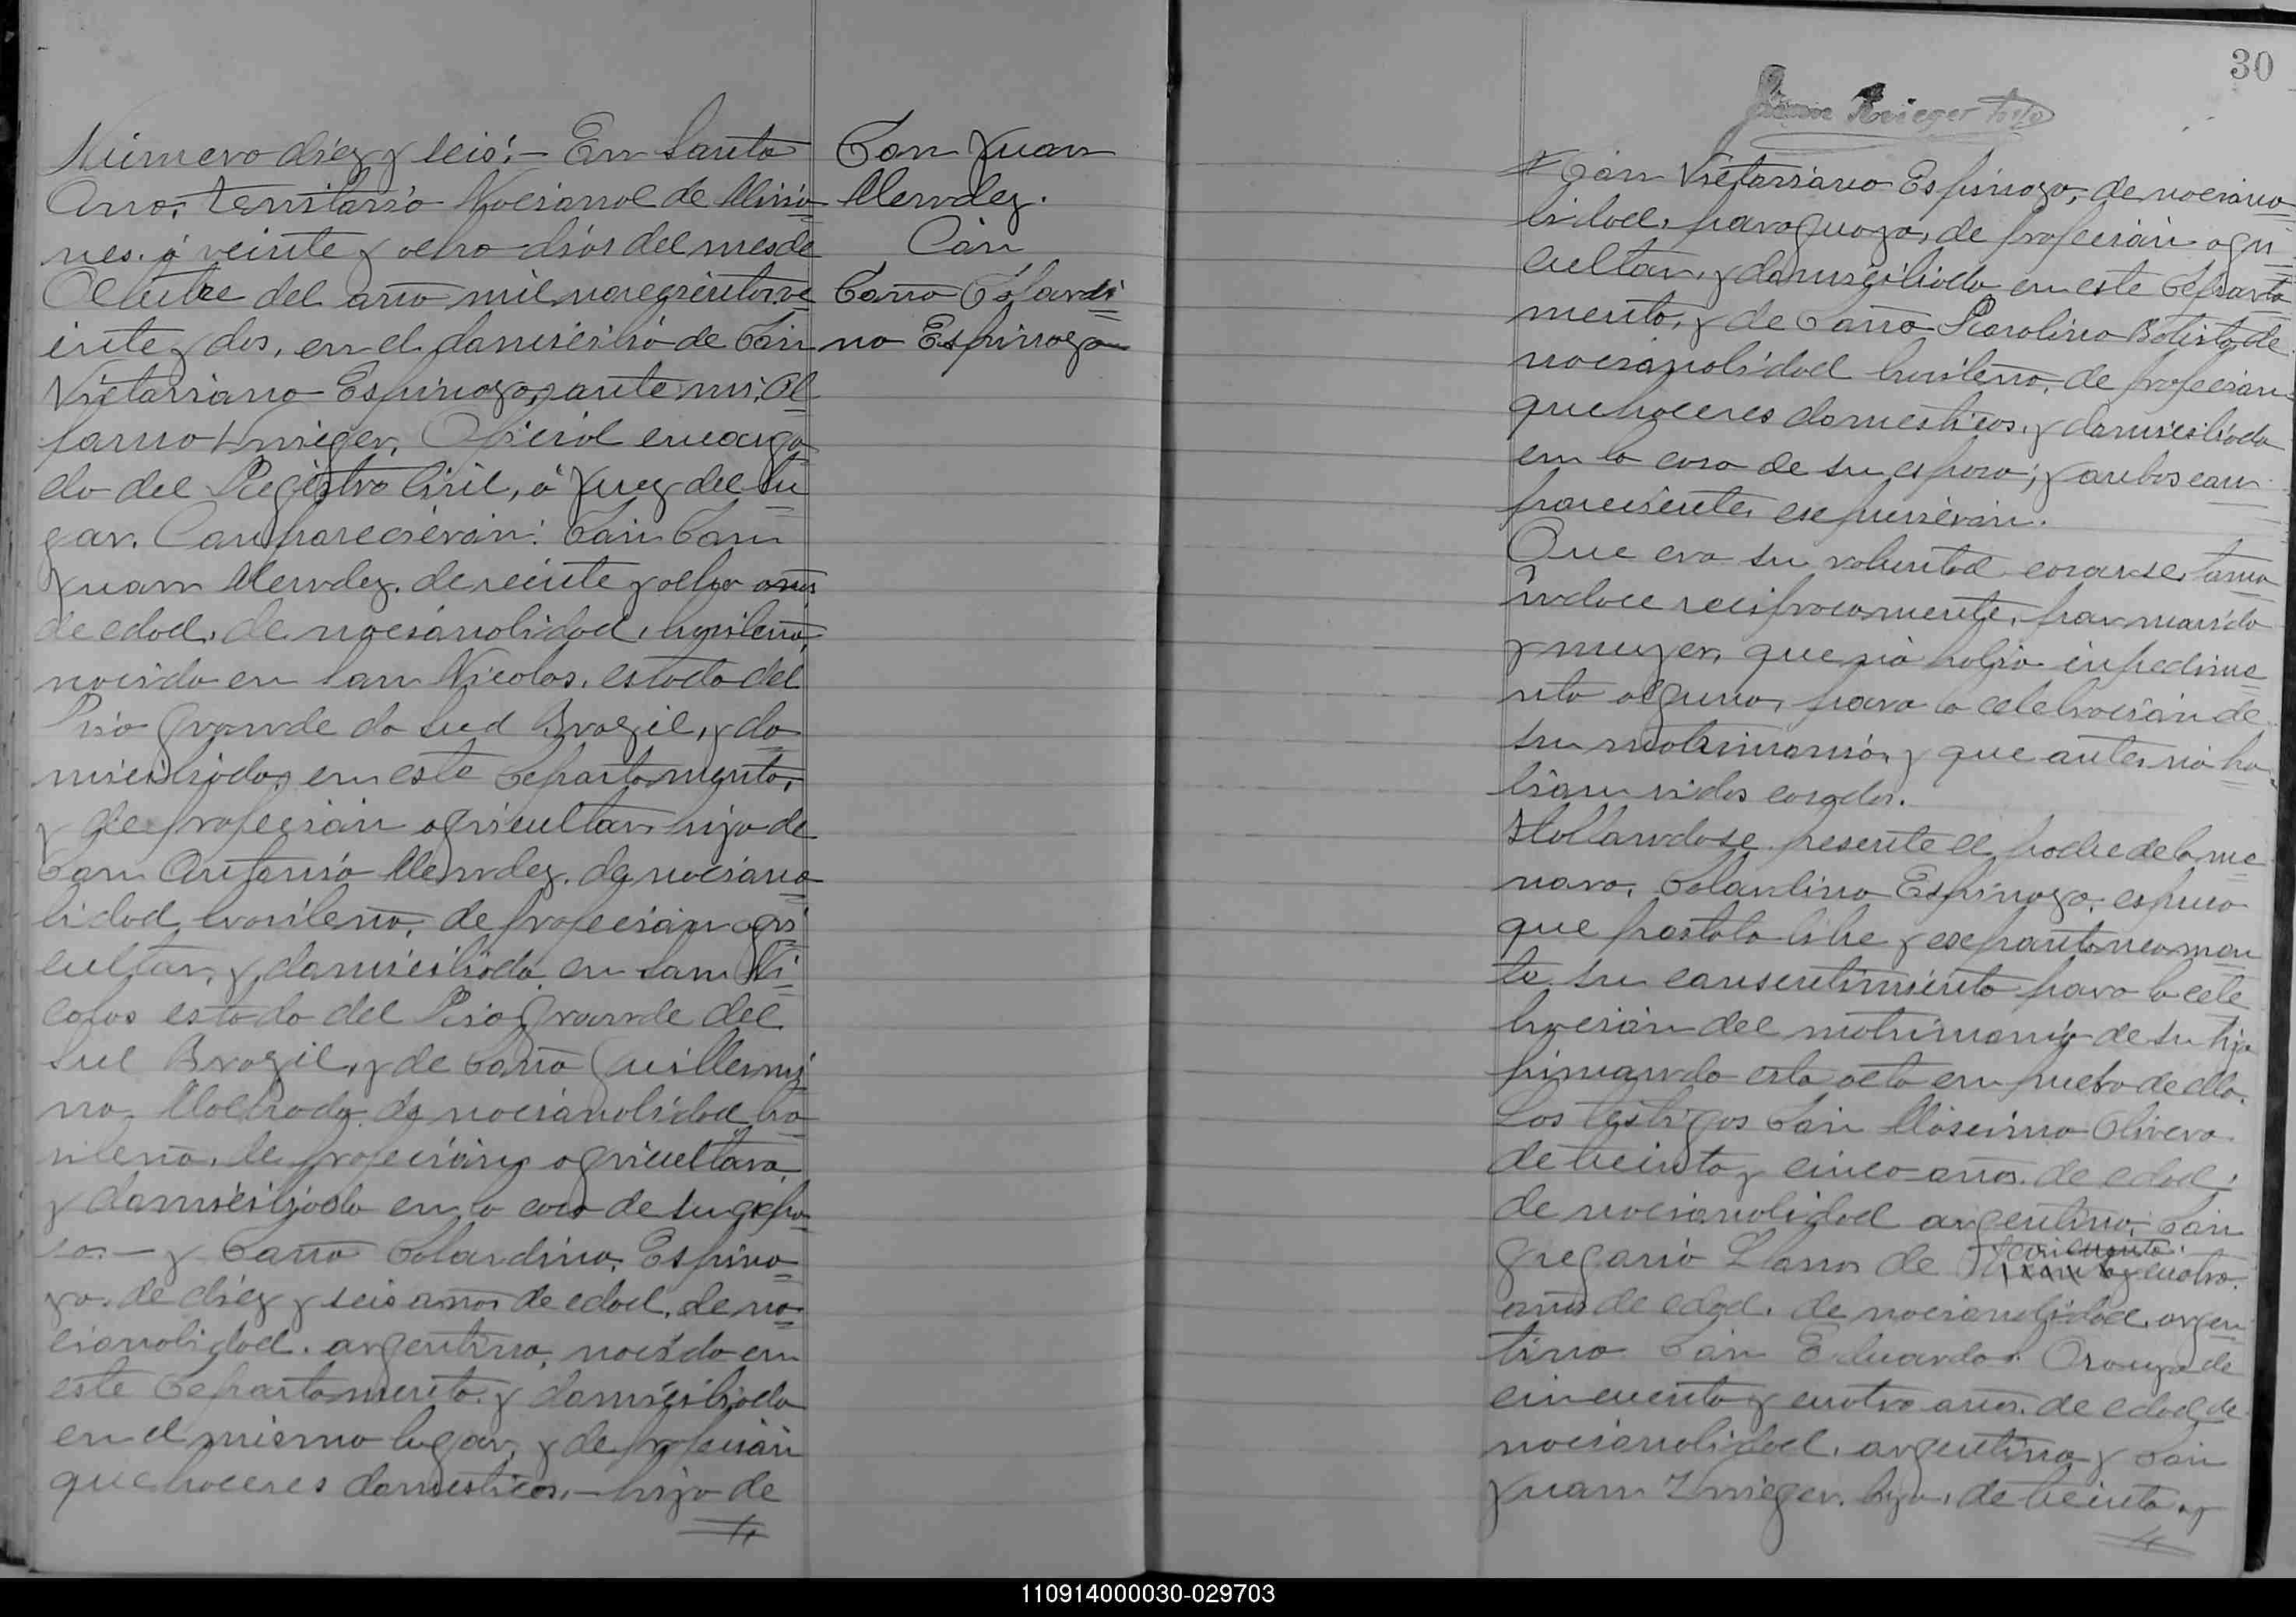 Número diez y seis.— En Santa
Ana, territorio Nacional de Misio
nes. á veinte y ocho dias del mes de
Octubre del año mil novecientos ve
inte y dos, en el domicilio de Don
Victoriano Espinoza, ante mi,
Krieger, Oficial encarga
do del Registro Civil, ó Juez del lu
gar. Comparecieron: Don Don
Juan Mendez. de veinte y ocho años
de edad, de nacionalidad, brasileña,
nacido en San Nicolas, estado del
Rio Grande do Sud Brazil, y do
miciliado, en este Departamento,
y de profecion agricultor, hijo de
Don Antonio Mendez. de naciona
lidad brasileña, de profecion agri
cultor, y domiciliado en San Ni
colas estado del Rio Grande del
Sul Brazil, y de Doña Guillermi
na, Machado, de nacionalidad bra
sileña, de profecion, agricultora
y domiciliada en la casa de su espo
so.— y Doña Dolandina, Espino
za. de diez y seis años de edad, de na
cionalidad. argentina, nacida en
este Departamento y domiciliada
en el mismo lugar, y de profecion
que haceres domesticos,— hija de
Don Juan
Mendez.
Con
Doña Dolandi
na Espinoza
30
Juan Krieger hijo
Don Victoriano Espinoza, de naciona
lidad, paraguaya, de profecion agri
cultor, y domiciliado en este Departa
mento, y de Doña Carolina Batista de
nacionalidad brasileña, de profecion
quehaceres domesticos, y domiciliada
en la casa de su esposo; y ambos com
parecientes expusieron.
Que era su voluntad casarse, toma
ndoce reciprocamente, por marido
y muger, que nó habia inpedime
nto alguno, para la celebracion de
su matrimonio, y que antes nó ha
bian sidos casados.
Hallandose presente el padre de la me
nora, Dolandina Espinoza, espuso
que prestala libre y expontaneamen
te su consentimiento para la cele
bracion del matrimonio de su hija
firmando esta acta en prueba de ello.
Los testigos Don Macimo Olivera
de treinta y cinco años de edad,
de nacionalidad argentina, Don
Gregorio Llano de cuatro
años de edad. de nacionalidad, argen
tina Don Eduardo de
cincuenta y cuatro años. de edad, de
nacionalidad. argentina y Don
Juan Krieger. hijo, de treinta y
110914000030-029703